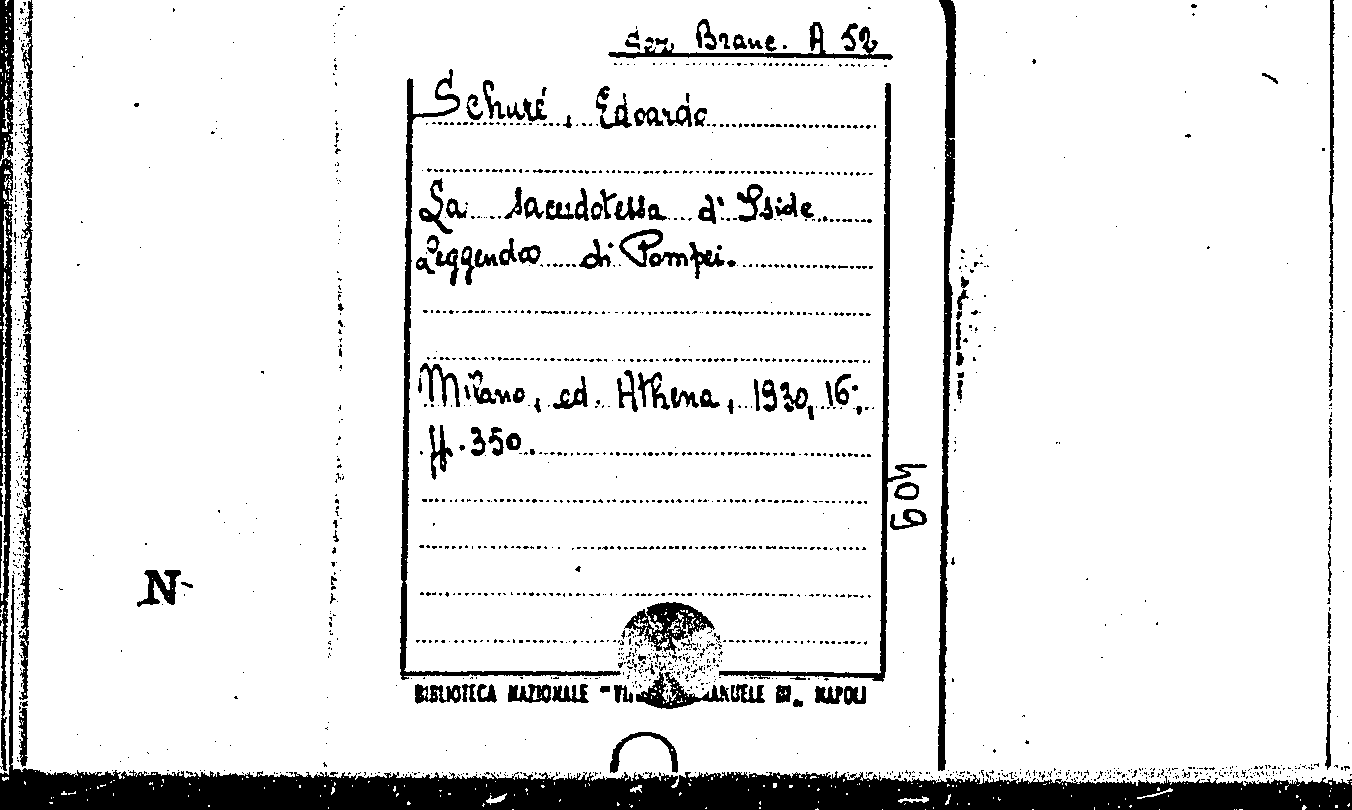 Ser. Branc. A 52
Schuré, Edoardo
La sacerdotessa d'Iside.
Leggenda di Pompei.
Milano, ed. Athena, 1930, 16°,
pp. 350.
409
N
BIBLIOTECA NAZIONALE "VI MANUELE III„ NAPOLI